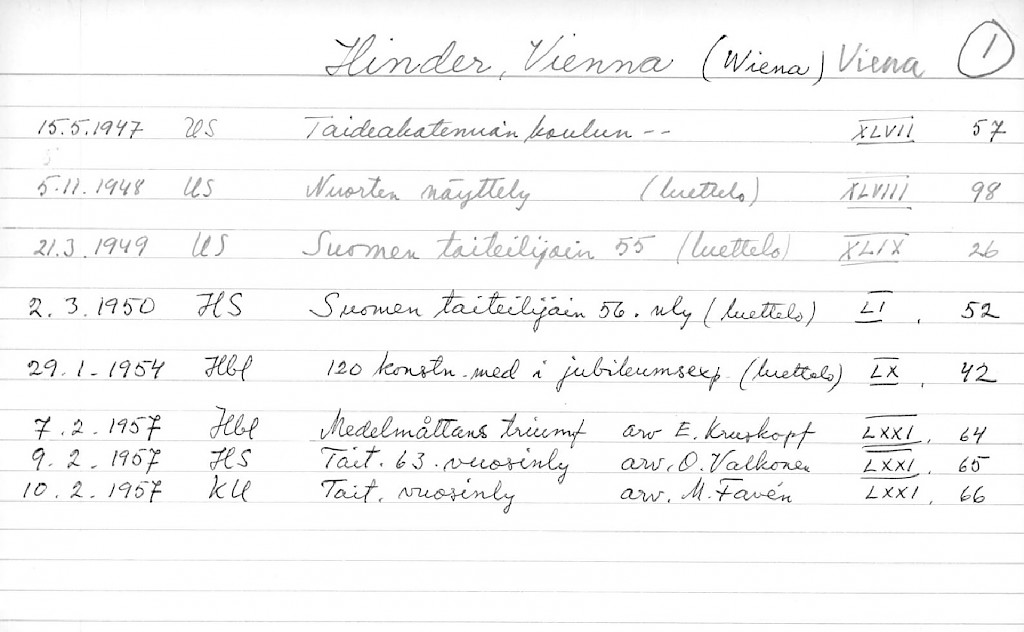 Hinder, Vienna (Wiena) Viena 1
15.5.1947 US Taideakatemian koulun -- XLVII 57
5.11.1948 US Nuorten näyttely (luettelo) XLVIII 98
21.3.1949 US Suomen taiteilijain 55 (luettelo) XLIX 26
2.3.1950 HS Suomen taiteilijain 56. nly (luettelo) LI, 52
29.1.1954 Hbl 120 konstn. med i jubileumsexp. (luettelo) LX, 42
7.2.1957 Hbl Medelmåttans triumf arv E. Kruskopf LXXI, 64
9.2.1957 HS Tait. 63. vuosinly arv. O. Valkonen LXXI, 65
10.2.1957 KU Tait. vuosinly arv. M. Favén LXXI, 66